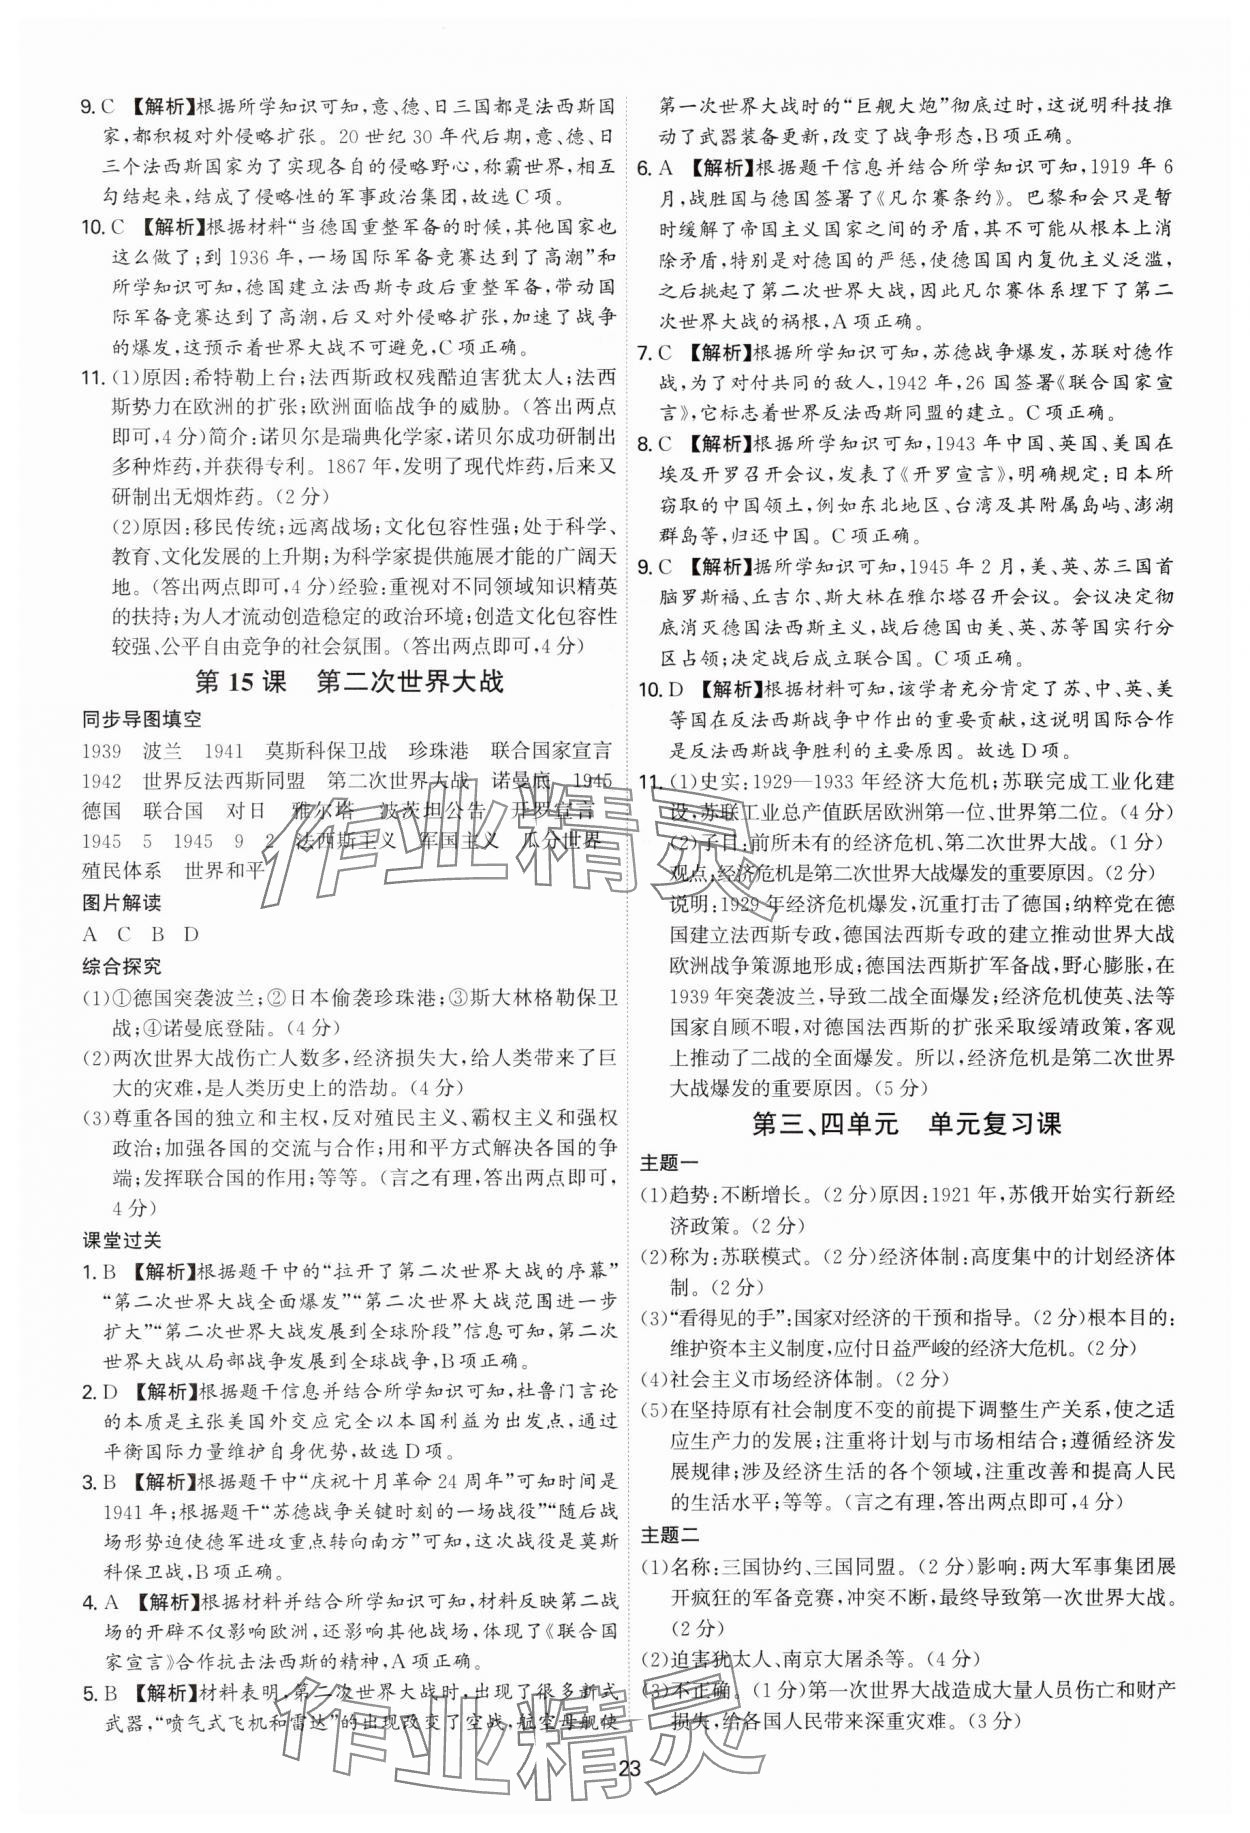 9. C 【解析】根据所学知识可知,意、德、日三国都是法西斯国
家,都积极对外侵略扩张。20 世纪 30 年代后期,意、德、日
三个法西斯国家为了实现各自的侵略野心,称霸世界,相互
勾结起来,结成了侵略性的军事政治集团,故选 C 项。
10. C 【解析】根据材料“当德国重整军备的时候,其他国家也
这么做了;到 1936 年,一场国际军备竞赛达到了高潮”和
所学知识可知,德国建立法西斯专政后重整军备,带动国
际军备竞赛达到了高潮,后又对外侵略扩张,加速了战争
的爆发,这预示着世界大战不可避免,C 项正确。
11. (1)原因:希特勒上台;法西斯政权残酷迫害犹太人;法西
斯势力在欧洲的扩张;欧洲面临战争的威胁。(答出两点
即可,4 分)简介:诺贝尔是瑞典化学家,诺贝尔成功研制出
多种炸药,并获得专利。1867 年,发明了现代炸药,后来又
研制出无烟炸药。(2 分)
(2)原因:移民传统;远离战场;文化包容性强;处于科学、
教育、文化发展的上升期;为科学家提供施展才能的广阔天
地。(答出两点即可,4 分)经验:重视对不同领域知识精英
的扶持;为人才流动创造稳定的政治环境;创造文化包容性
较强、公平自由竞争的社会氛围。(答出两点即可,4 分)
第 15 课 第二次世界大战
同步导图填空
1939 波兰 1941 莫斯科保卫战 珍珠港 联合国家宣言
1942 世界反法西斯同盟 第二次世界大战 诺曼底 1945
德国 联合国 对日 雅尔塔 波茨坦公告 开罗宣言
1945 5 1945 9 2 法西斯主义 军国主义 瓜分世界
殖民体系 世界和平
图片解读
A C B D
综合探究
(1)①德国突袭波兰;②日本偷袭珍珠港;③斯大林格勒保卫
战;④诺曼底登陆。(4 分)
(2)两次世界大战伤亡人数多,经济损失大,给人类带来了巨
大的灾难,是人类历史上的浩劫。(4 分)
(3)尊重各国的独立和主权,反对殖民主义、霸权主义和强权
政治;加强各国的交流与合作;用和平方式解决各国的争
端;发挥联合国的作用;等等。(言之有理,答出两点即可,
4 分)
课堂过关
1. B 【解析】根据题干中的“拉开了第二次世界大战的序幕”
“第二次世界大战全面爆发”“第二次世界大战范围进一步
扩大”“第二次世界大战发展到全球阶段”信息可知,第二次
世界大战从局部战争发展到全球战争,B 项正确。
2. D 【解析】根据题干信息并结合所学知识可知,杜鲁门言论
的本质是主张美国外交应完全以本国利益为出发点,通过
平衡国际力量维护自身优势,故选 D 项。
3. B 【解析】根据题干中“庆祝十月革命 24 周年”可知时间是
1941 年;根据题干“苏德战争关键时刻的一场战役”“随后战
场形势迫使德军进攻重点转向南方”可知,这次战役是莫斯
科保卫战,B 项正确。
4. A 【解析】根据材料并结合所学知识可知,材料反映第二战
场的开辟不仅影响欧洲,还影响其他战场,体现了《联合国
家宣言》合作抗击法西斯的精神,A 项正确。
5. B 【解析】材料表明,第二次世界大战时,出现了很多新式
武器,“喷气式飞机和雷达”的出现改变了空战,航空母舰使
第一次世界大战时的“巨舰大炮”彻底过时,这说明科技推
动了武器装备更新,改变了战争形态,B 项正确。
6. A 【解析】根据题干信息并结合所学知识可知,1919 年 6
月,战胜国与德国签署了《凡尔赛条约》。巴黎和会只是暂
时缓解了帝国主义国家之间的矛盾,其不可能从根本上消
除矛盾,特别是对德国的严惩,使德国国内复仇主义泛滥,
之后挑起了第二次世界大战,因此凡尔赛体系埋下了第二
次世界大战的祸根,A 项正确。
7. C 【解析】根据所学知识可知,苏德战争爆发,苏联对德作
战,为了对付共同的敌人,1942 年,26 国签署《联合国家宣
言》,它标志着世界反法西斯同盟的建立。C 项正确。
8. C 【解析】根据所学知识可知,1943 年中国、英国、美国在
埃及开罗召开会议,发表了《开罗宣言》,明确规定:日本所
窃取的中国领土,例如东北地区、台湾及其附属岛屿、澎湖
群岛等,归还中国。C 项正确。
9. C 【解析】据所学知识可知,1945 年 2 月,美、英、苏三国首
脑罗斯福、丘吉尔、斯大林在雅尔塔召开会议。会议决定彻
底消灭德国法西斯主义,战后德国由美、英、苏等国实行分
区占领;决定战后成立联合国。C 项正确。
10. D 【解析】根据材料可知,该学者充分肯定了苏、中、英、美
等国在反法西斯战争中作出的重要贡献,这说明国际合作
是反法西斯战争胜利的主要原因。故选 D 项。
11. (1)史实:1929—1933 年经济大危机;苏联完成工业化建
设,苏联工业总产值跃居欧洲第一位、世界第二位。(4 分)
(2)子目:前所未有的经济危机、第二次世界大战。(1 分)
观点:经济危机是第二次世界大战爆发的重要原因。(2 分)
说明:1929 年经济危机爆发,沉重打击了德国;纳粹党在德
国建立法西斯专政,德国法西斯专政的建立推动世界大战
欧洲战争策源地形成;德国法西斯扩军备战,野心膨胀,在
1939 年突袭波兰,导致二战全面爆发;经济危机使英、法等
国家自顾不暇,对德国法西斯的扩张采取绥靖政策,客观
上推动了二战的全面爆发。所以,经济危机是第二次世界
大战爆发的重要原因。(5 分)
第三、四单元 单元复习课
主题一
(1)趋势:不断增长。(2 分)原因:1921 年,苏俄开始实行新经
济政策。(2 分)
(2)称为:苏联模式。(2 分)经济体制:高度集中的计划经济体
制。(2 分)
(3)“看得见的手”:国家对经济的干预和指导。(2 分)根本目的:
维护资本主义制度,应付日益严峻的经济大危机。(2 分)
(4)社会主义市场经济体制。(2 分)
(5)在坚持原有社会制度不变的前提下调整生产关系,使之适
应生产力的发展;注重将计划与市场相结合;遵循经济发
展规律;涉及经济生活的各个领域,注重改善和提高人民
的生活水平;等等。(言之有理,答出两点即可,4 分)
主题二
(1)名称:三国协约、三国同盟。(2 分)影响:两大军事集团展
开疯狂的军备竞赛,冲突不断,最终导致第一次世界大战。
(2 分)
(2)迫害犹太人、南京大屠杀等。(4 分)
(3)不正确。(1 分)第一次世界大战造成大量人员伤亡和财产
损失,给各国人民带来深重灾难。(3 分)
23
作业精灵
作业精灵